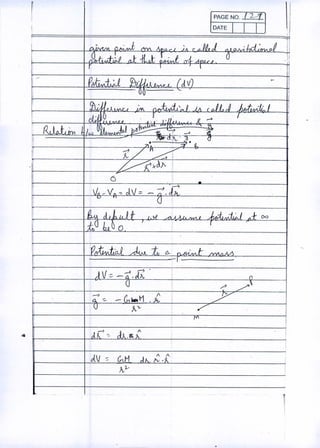 PAGE NO. 121
DATE
given point on space is called gravitational
potential at that point of space.
Potential Difference (dV)
Difference in potential is called potential
difference.
Relation b/w elemental potential difference & g⃗
dr⃗ g⃗
A B
r⃗
r⃗+dr⃗
O
V_B - V_A = dV = - g⃗.dr⃗
By default, we assume potential at ∞
to be 0.
Potential due to a point mass
dV = - g⃗.dr⃗
P
g⃗ = - GM . r̂
r²
r⃗
M
dr⃗ = dr r̂
dV = GM dr r̂.r̂
r²